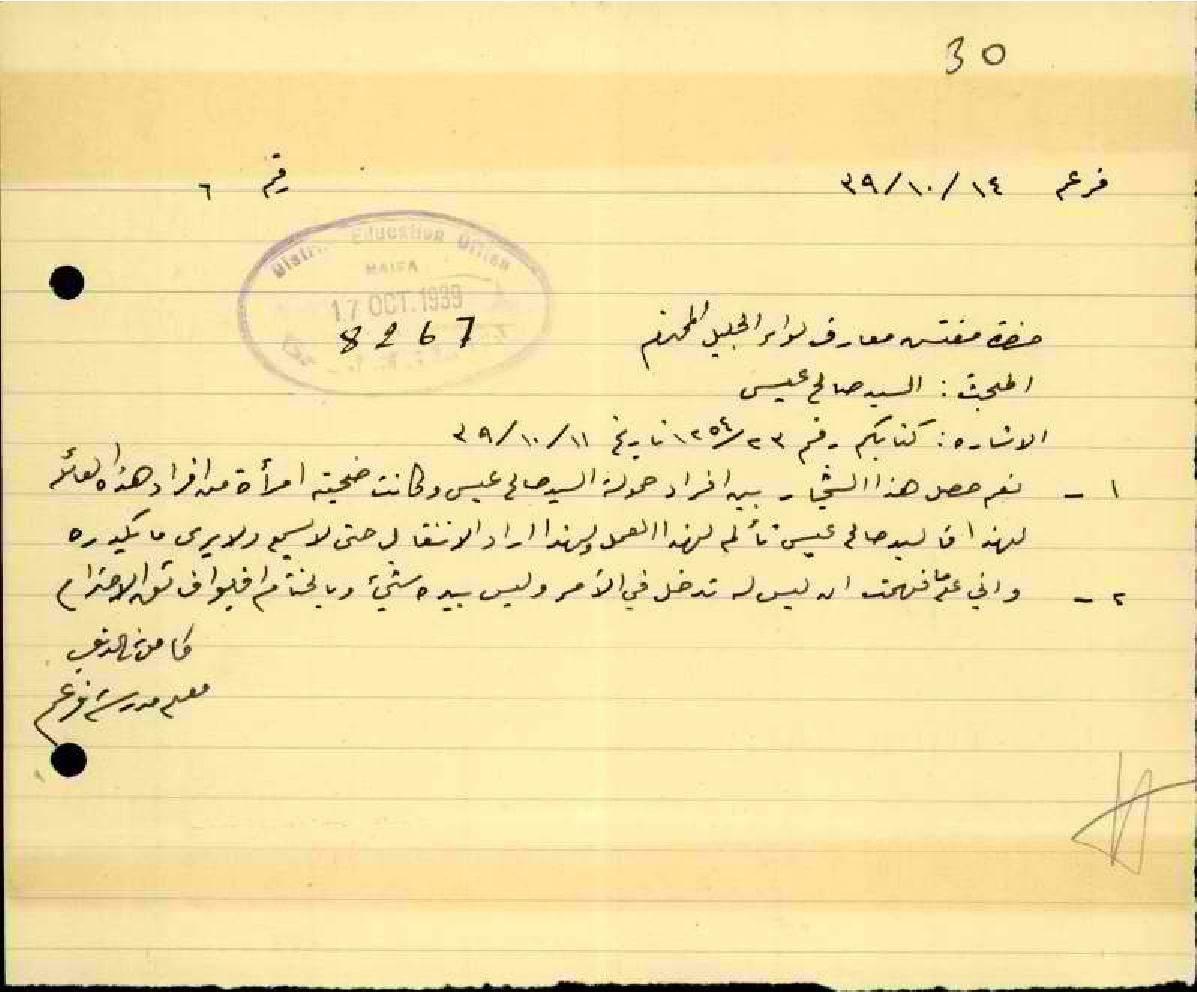 30
فرعم ١٤/١٠/٣٩ رقم ٦
District Education Office
HAIFA
17 OCT. 1939
8267
حضرة مفتش معارف لواء الجليل المحترم
المبحث : السيد صالح عيسى
الاشاره : كتابكم رقم ١٢٥٤/٢٣ تاريخ ١١/١٠/٣٩
١ - نعم حصل هذا الشجار بين افراد حمولة السيد صالح عيسى وكانت ضحيته امرأة من افراد هذه العائلة
لهذا فالسيد صالح عيسى تألم لهذا العمل ولهذا اراد الانتقال حتى لا يسمع ولا يرى ما يكدره
٢ - واني علي ما فهمت ان ليس له تدخل في الأمر وليس بيده شيئ وبالختام اقبلوا فائق الاحترام
معلم مدرسة فرعم